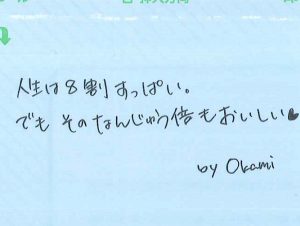 人生は8割すっぱい。
でも そのなんじゅう倍もおいしい♥
by Okami